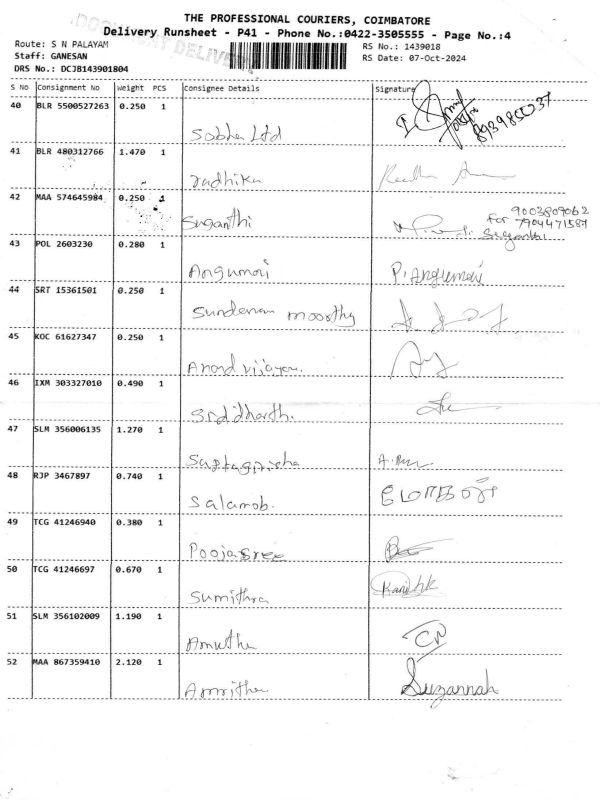 THE PROFESSIONAL COURIERS, COIMBATORE
Delivery Runsheet - P41 - Phone No.:0422-3505555 - Page No.:4
Route: S N PALAYAM
RS No.: 1439018
Staff: GANESAN
RS Date: 07-Oct-2024
DRS No.: DCJB143901804
S No Consignment No Weight PCS Consignee Details Signature
40 BLR 5500527263 0.250 1
Sobha Ltd
41 BLR 480312766 1.470 1
Radhika
42 MAA 574645984 0.250 1
Suganthi For 9003809062
7904471587
Suganthi
43 POL 2603230 0.280 1
Angumani P. Angumani
44 SRT 15361501 0.250 1
Sunderam moorthy
45 KOC 61627347 0.250 1
Anand vijayan.
46 IXM 303327010 0.490 1
Sriddharth.
47 SLM 356006135 1.270 1
Saptagirisha
48 RJP 3467897 0.740 1
Salamob.
49 TCG 41246940 0.380 1
Poojasree
50 TCG 41246697 0.670 1
Sumithra
51 SLM 356102009 1.190 1
Amutha
52 MAA 867359410 2.120 1
Amritha Suzannah